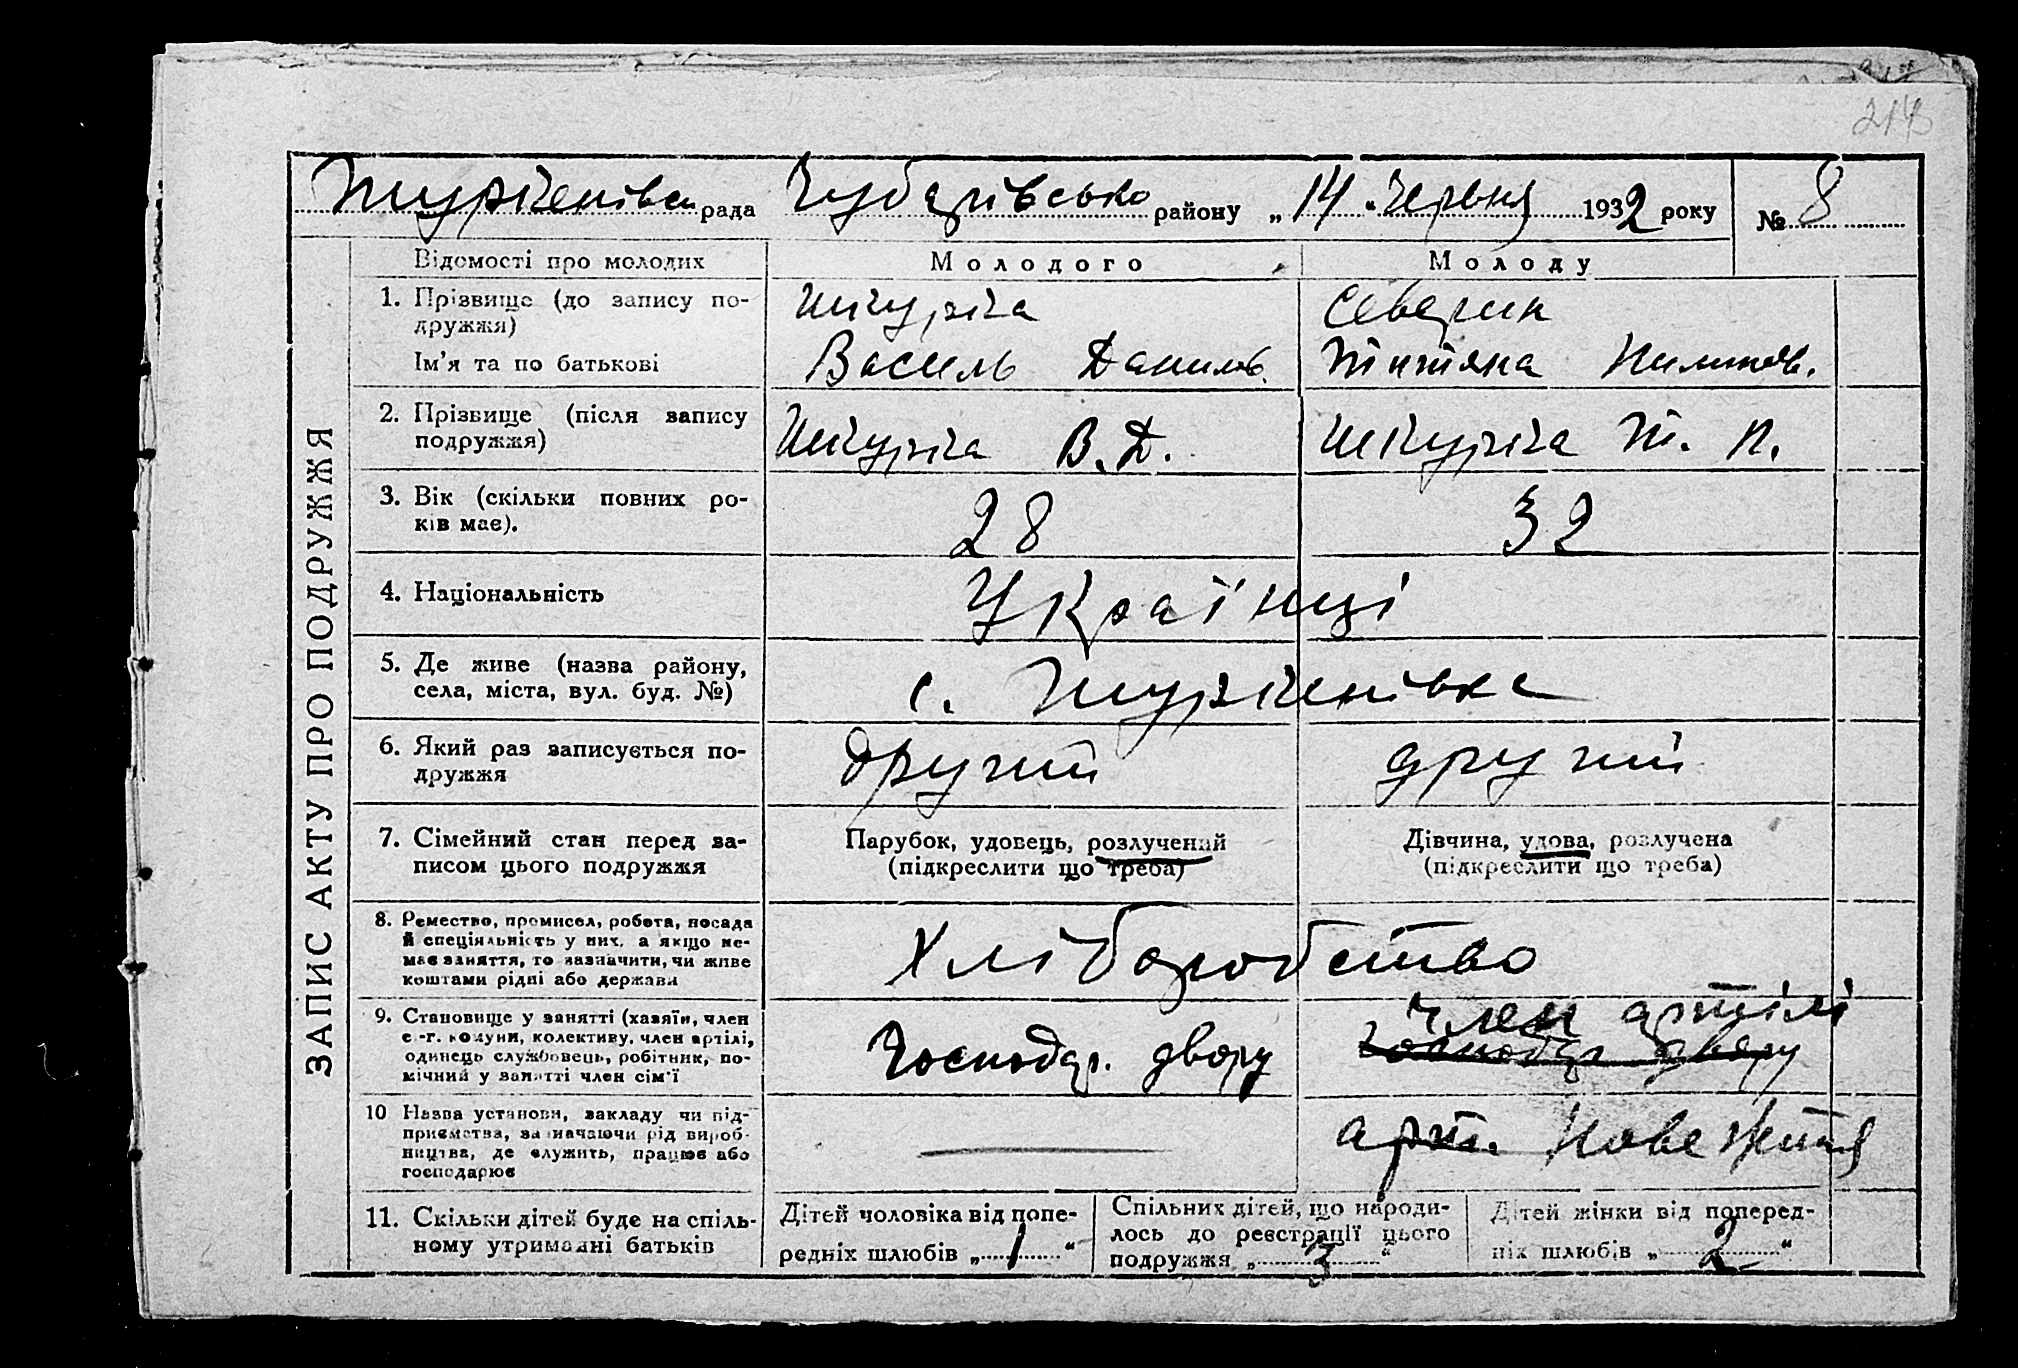 214
Туркенівсь рада Чубарівсько району „ 14 " червня 1932 року № 8
ЗАПИС АКТУ ПРО ПОДРУЖЖЯ
Відомості про молодих Молодого Молоду
1. Прізвище (до запису по-
дружжя) Шкурка Северин
Ім'я та по батькові Василь Данилов. Титяна Пилипов.
2. Прізвище (після запису
подружжя) Шкурка В. Д. Шкурка Т. П.
3. Вік (скільки повних ро-
ків має). 28 32
4. Національність Українці
5. Де живе (назва району,
села, міста, вул. буд. №) с. Туркенівка
6. Який раз записується по-
дружжя другий другий
7. Сімейний стан перед за-
писом цього подружжя
Парубок, удовець, розлучений
(підкреслити що треба)
Дівчина, удова, розлучена
(підкреслити що треба)
8. Ремество, промисел, робота, посада
й спеціяльність у них, а якщо не-
має заняття, то зазначити, чи живе
коштами рідні або держави
Хліборобство
9. Становище у занятті (хазяїн, член
с.-г. комуни, колективу, член артілі,
одинець службовець, робітник, по-
мічний у занятті член сім'ї
Господар. двору
член артілі
господар двору
10 Назва установи, закладу чи під-
приємства, зазначаючи рід вироб-
ництва, де служить, працює або
господарює
арт. Нове Життя
11. Скільки дітей буде на спіль-
ному утриманні батьків
Дітей чоловіка від попе-
редніх шлюбів „ 1 "
Спільних дітей, що народи-
лось до реєстрації цього
подружжя „ 3 "
Дітей жінки від поперед-
ніх шлюбів „ 2 "